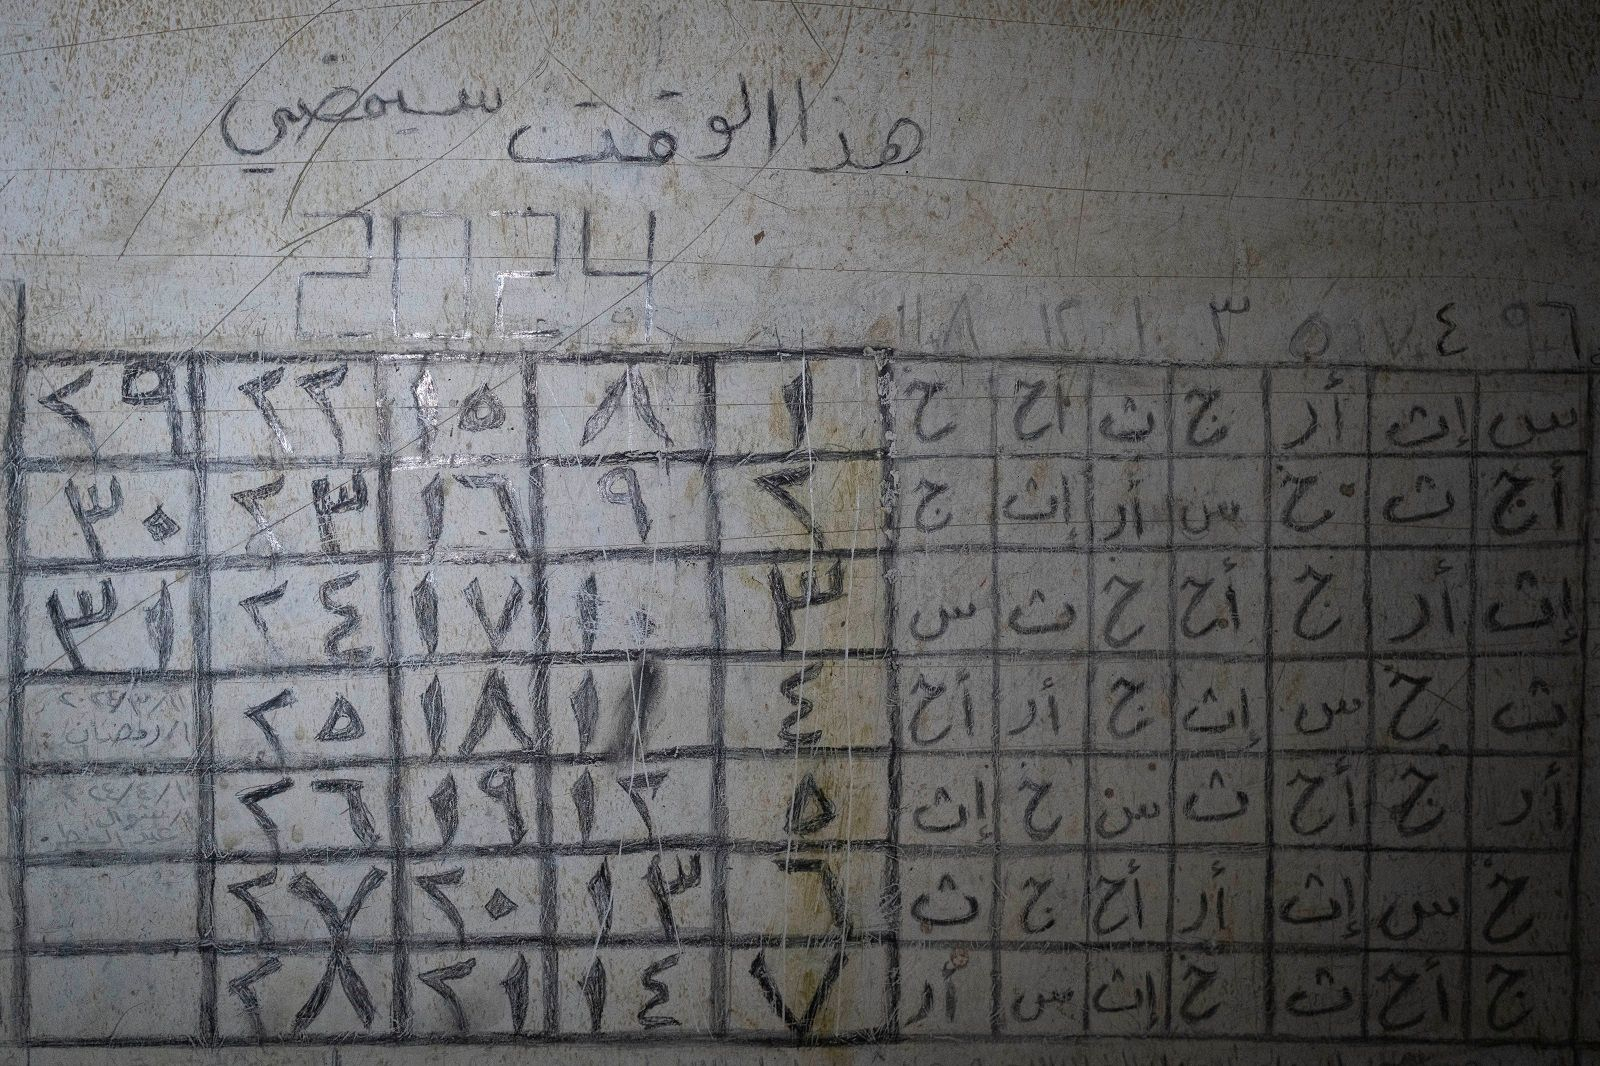 هذا الوقت سيمضي
2024
٦ ٩ ٤ ٧ ٥ ٣ ١ ١٢ ٨ ١١
س إث أر ج ث أح خ ١ ٨ ١٥ ٢٢ ٢٩
أح ث خ س أر إث ج ٢ ٩ ١٦ ٢٣ ٣٠
إث أر ج أح خ ث س ٣ ١٠ ١٧ ٢٤ ٣١
ث خ س إث ج أر أح ٤ ١١ ١٨ ٢٥
١١/٣/٢٠٢٤
١/رمضان.
أر ج أح ث س خ إث ٥ ١٢ ١٩ ٢٦
١/شوال
عيد الفطر.
خ س إث أر أح ج ث ٦ ١٣ ٢٠ ٢٧
ج أح ث خ إث س أر ٧ ١٤ ٢١ ٢٨